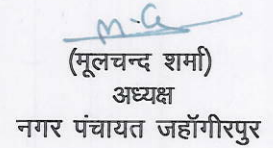 (मूलचन्द शर्मा)
अध्यक्ष
नगर पंचायत जहॉगीरपुर